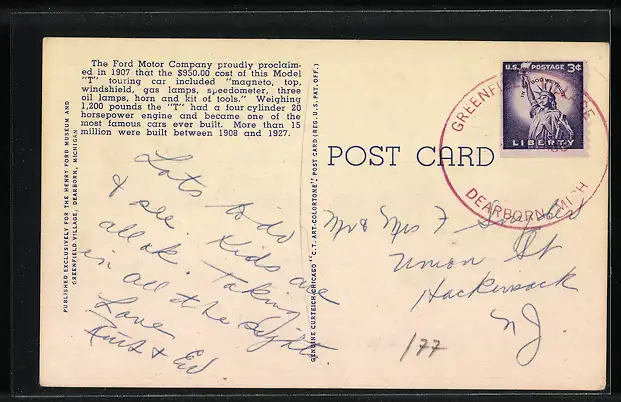 The Ford Motor Company proudly proclaim-
ed in 1907 that the $950.00 cost of this Model
"T" touring car included "magneto, top,
windshield, gas lamps, speedometer, three
oil lamps, horn and kit of tools." Weighing
1,200 pounds the "T" had a four cylinder 20
horsepower engine and became one of the
most famous cars ever built. More than 15
million were built between 1908 and 1927.
PUBLISHED EXCLUSIVELY FOR THE HENRY FORD MUSEUM AND
GREENFIELD VILLAGE, DEARBORN, MICHIGAN
Lots to do
& see. Kids are
all ok. Taking
in all the sights.
Love
& Ed
GENUINE CURTEICH-CHICAGO "C.T. ART-COLORTONE" POST CARD (REG. U.S. PAT. OFF.)
POST CARD
U.S. POSTAGE 3¢
IN GOD WE TRUST
LIBERTY
GREENFIELD
DEARBORN, MICH
Mr & Mrs F
Union St
Hackensack
NJ
177